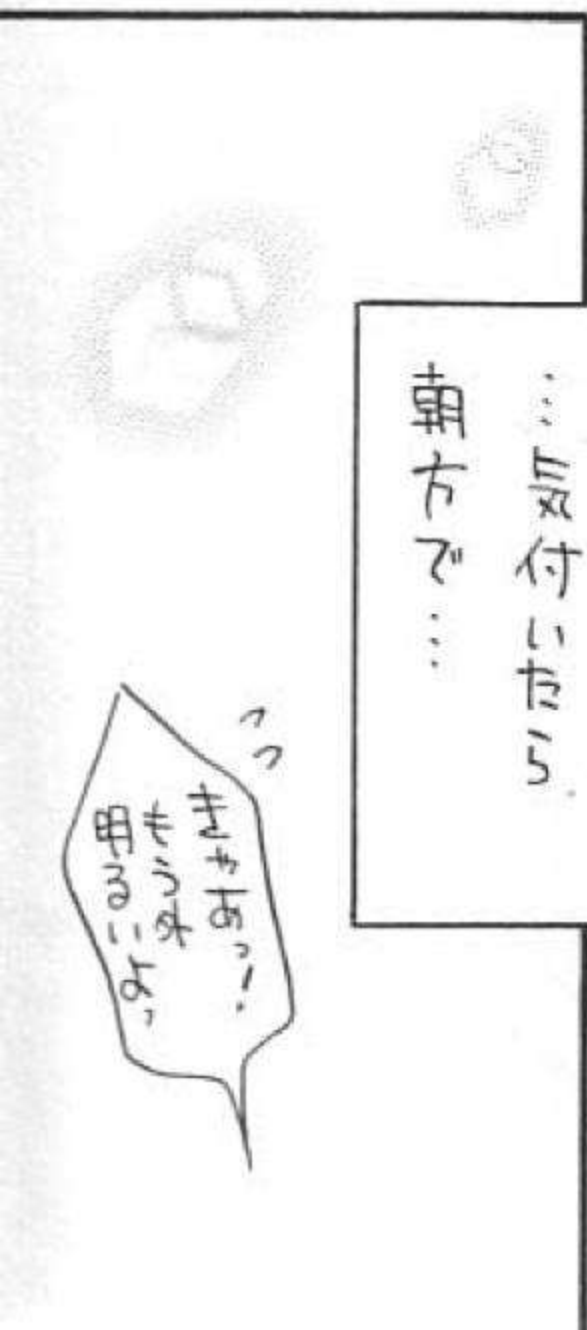 …気付いたら
朝方で…
きゃあっ!
もう外
明るいよっ